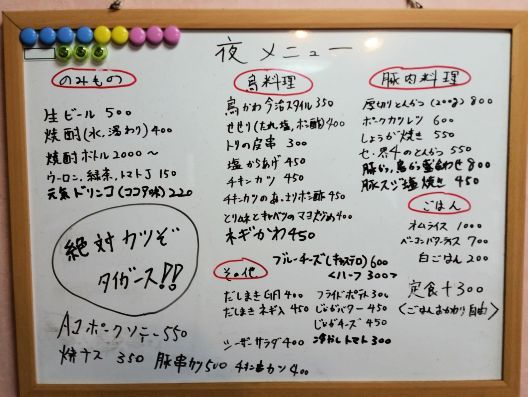 夜メニュー
のみもの
生ビール 500
焼酎(水、湯わり)400
焼酎ボトル 2000〜
ウーロン、緑茶、トマトJ 150
元気ドリンコ(ココア味)220
絶対カツぞ
タイガース!!
AJポークソテー 550
焼ナス 350 豚串カツ500 チキン串カツ 400
鳥料理
鳥かわ今治スタイル 350
せせり(たれ、塩、ポン酢)400
トリの皮串 300
塩からあげ 450
チキンカツ 450
チキンカツのあっさりポン酢 450
とりムネとキャベツのマヨ炒め 400
ネギかわ 450
その他
ブルーチーズ(キャステロ)600
<ハーフ 300>
だしまき 400
だしまきネギ入 450
シーザーサラダ 400
フライドポテト 300
じゃがバター 450
じゃがチーズ 450
冷やしトマト 300
豚肉料理
厚切りとんかつ(200g) 800
ポークカツレツ 600
しょうが焼き 550
セ・界4のとんかつ 550
豚かつ、鳥かつ盛合わせ 800
豚スジ塩焼き 450
ごはん
オムライス 1000
ベーコンバターライス 700
白ごはん 200
定食+300
〈ごはんおかわり自由〉